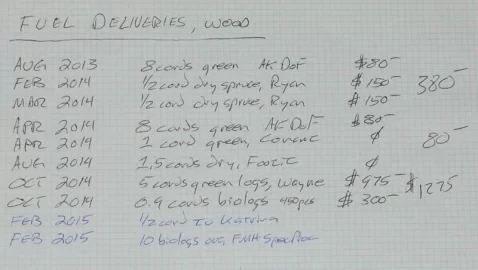 FUEL DELIVERIES, WOOD
AUG 2013 8 cords green AK DoF $80-
FEB 2014 1/2 cord dry spruce, Ryan $150- 380-
MAR 2014 1/2 cord dry spruce, Ryan $150-
APR 2014 8 cords green AK DoF $80-
APR 2014 1 cord green, ∅ 80-
AUG 2014 1.5 cords dry, ∅
OCT 2014 5 cords green logs, Wayne $975- $1275
OCT 2014 0.9 cords biologs 450pcs $300-
FEB 2015 1/2 cord to Katrina
FEB 2015 10 biologs FMH